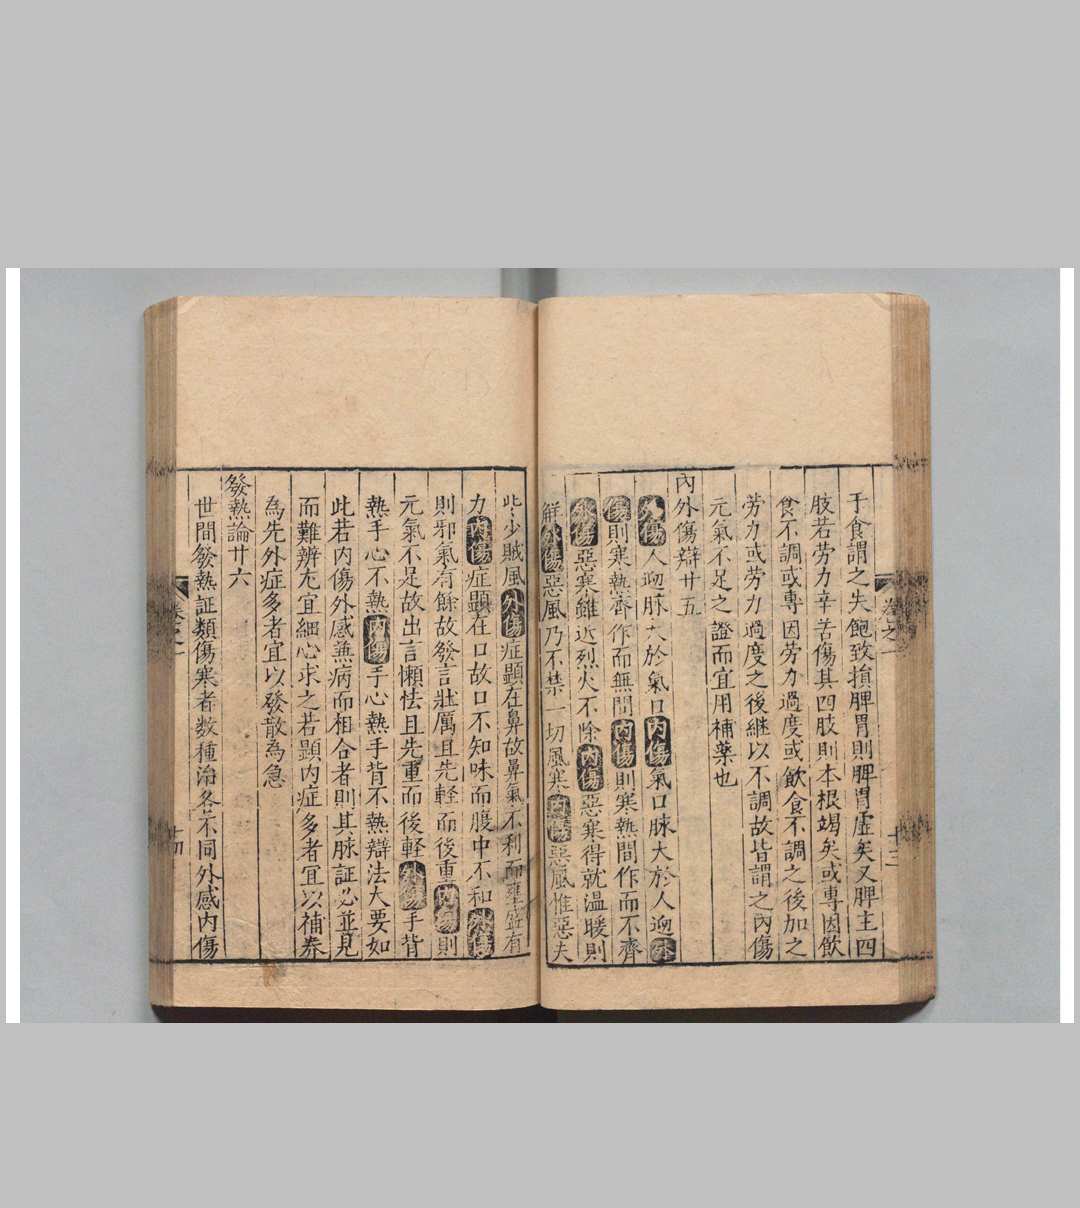 于食謂之失飽致損脾胃則脾胃虛矣又脾主四
肢若劳力辛苦傷其四肢則本根竭矣或專因飲
食不調或專因劳力過度或飲食不調之後加之
劳力或劳力過度之後継以不調故皆謂之內傷
元氣不足之證而宜用補藥也
內外傷辯廿五
外傷人迎脉大於氣口內傷氣口脉大於人迎外
傷則寒熱齊作而無間內傷則寒熱間作而不齊
外傷惡寒雖近烈火不除內傷惡寒得就溫暖則
觧外傷惡風乃不禁一切風寒內傷惡風惟惡夫
此少賊風外傷症顕在鼻故鼻氣不利而壅盛有
力內傷症顕在口故口不知味而腹中不和外傷
則邪氣有餘故發言壯厲且先軽而後重內傷則
元氣不足故出言懶怯且先重而後軽外傷手背
熱手心不熱內傷手心熱手背不熱辯法大要如
此若內傷外感兼病而相合者則其脉証必並見
而難辨尤宜細心求之若顕內症多者宜以補养
為先外症多者宜以發散為急
發熱論廿六
世間發熱証類傷寒者数種治各不同外感內傷
卷之一
十三
卷之一
十四